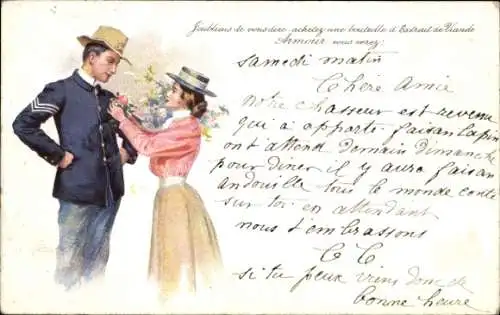 J'oubliais de vous dire, achetez une bouteille d'Extrait de Viande
Armour, vous verez.
samedi matin
Chère Amie
notre chasseur est revenu
qui a apporté faisan lapin
on t'attend demain Dimanche
pour diner il y aura faisan
andouille tous le monde conte
sur toi en attendant
nous t'embrassons
C C
si tu peux viens donc de
bonne heure